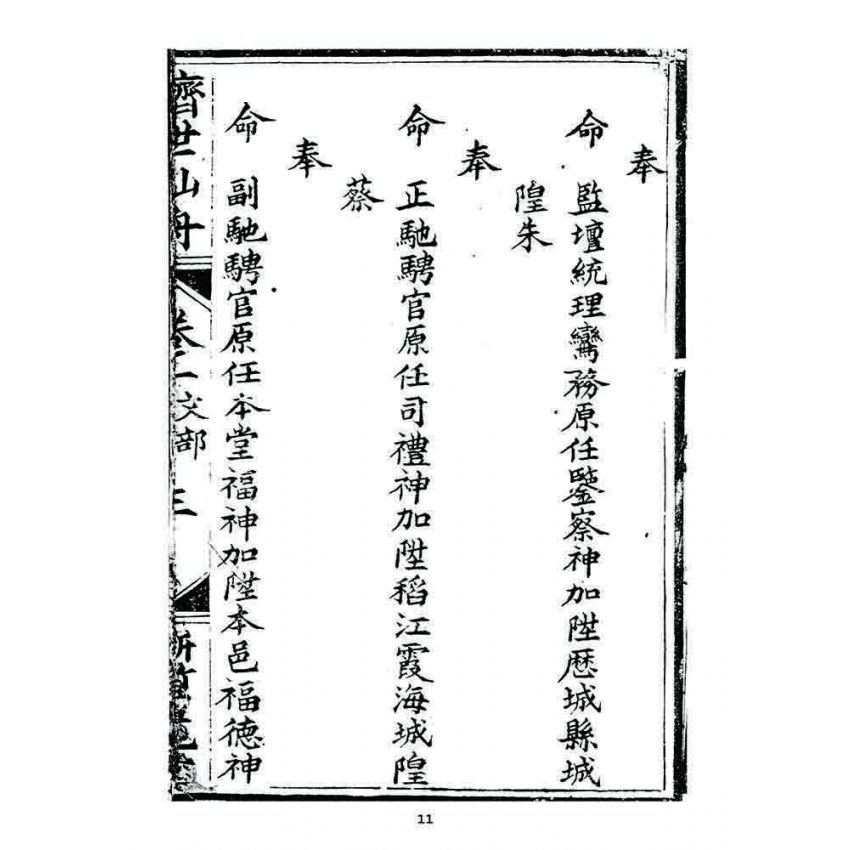 奉
命 監壇統理鸞務原任鑒察神加陞歷城縣城
隍朱
奉
命 正馳騁官原任司禮神加陞稻江霞海城隍
蔡
奉
命 副馳騁官原任本堂福神加陞本邑福德神
濟世仙舟 卷二 文部 三
11